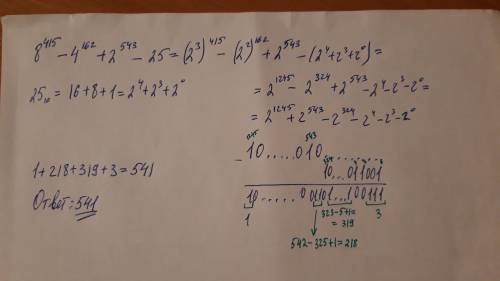 8^415 - 4^162 + 2^543 - 25 = (2^3)^415 - (2^2)^162 + 2^543 - (2^4+2^3+2^0) =
25_10 = 16+8+1 = 2^4+2^3+2^0
= 2^1245 - 2^324 + 2^543 - 2^4 - 2^3 - 2^0 =
= 2^1245 + 2^543 - 2^324 - 2^4 - 2^3 - 2^0
1245 543
- 10.....010..........
324
10...011001
10.....001101...100111
1+218+319+3=541
Ответ: 541
1
323-5+1=
=319
3
542-325+1=218